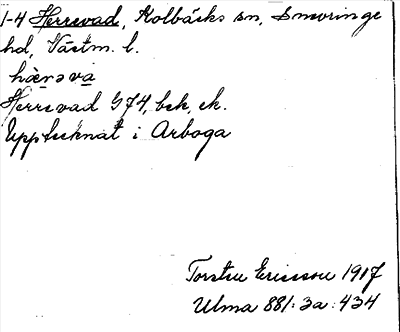 1-4 Herrsvad, Kolbäcks sn, Snevringe
hd, Västm. l.
hæ̀rəva
Herrsvad G74, bek, ek.
Upptecknat i Arboga
Torsten Ericsson 1917
Ulma 881:3a:434